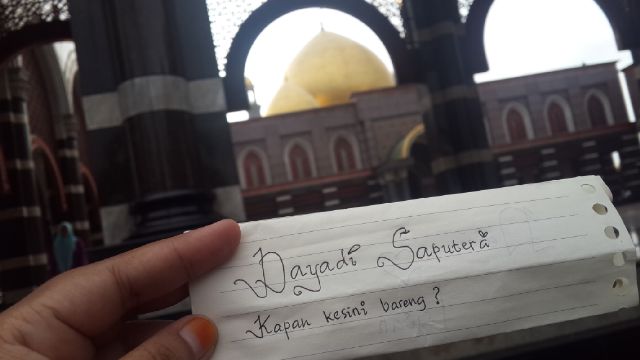 Dayadi Saputera
Kapan kesini bareng?